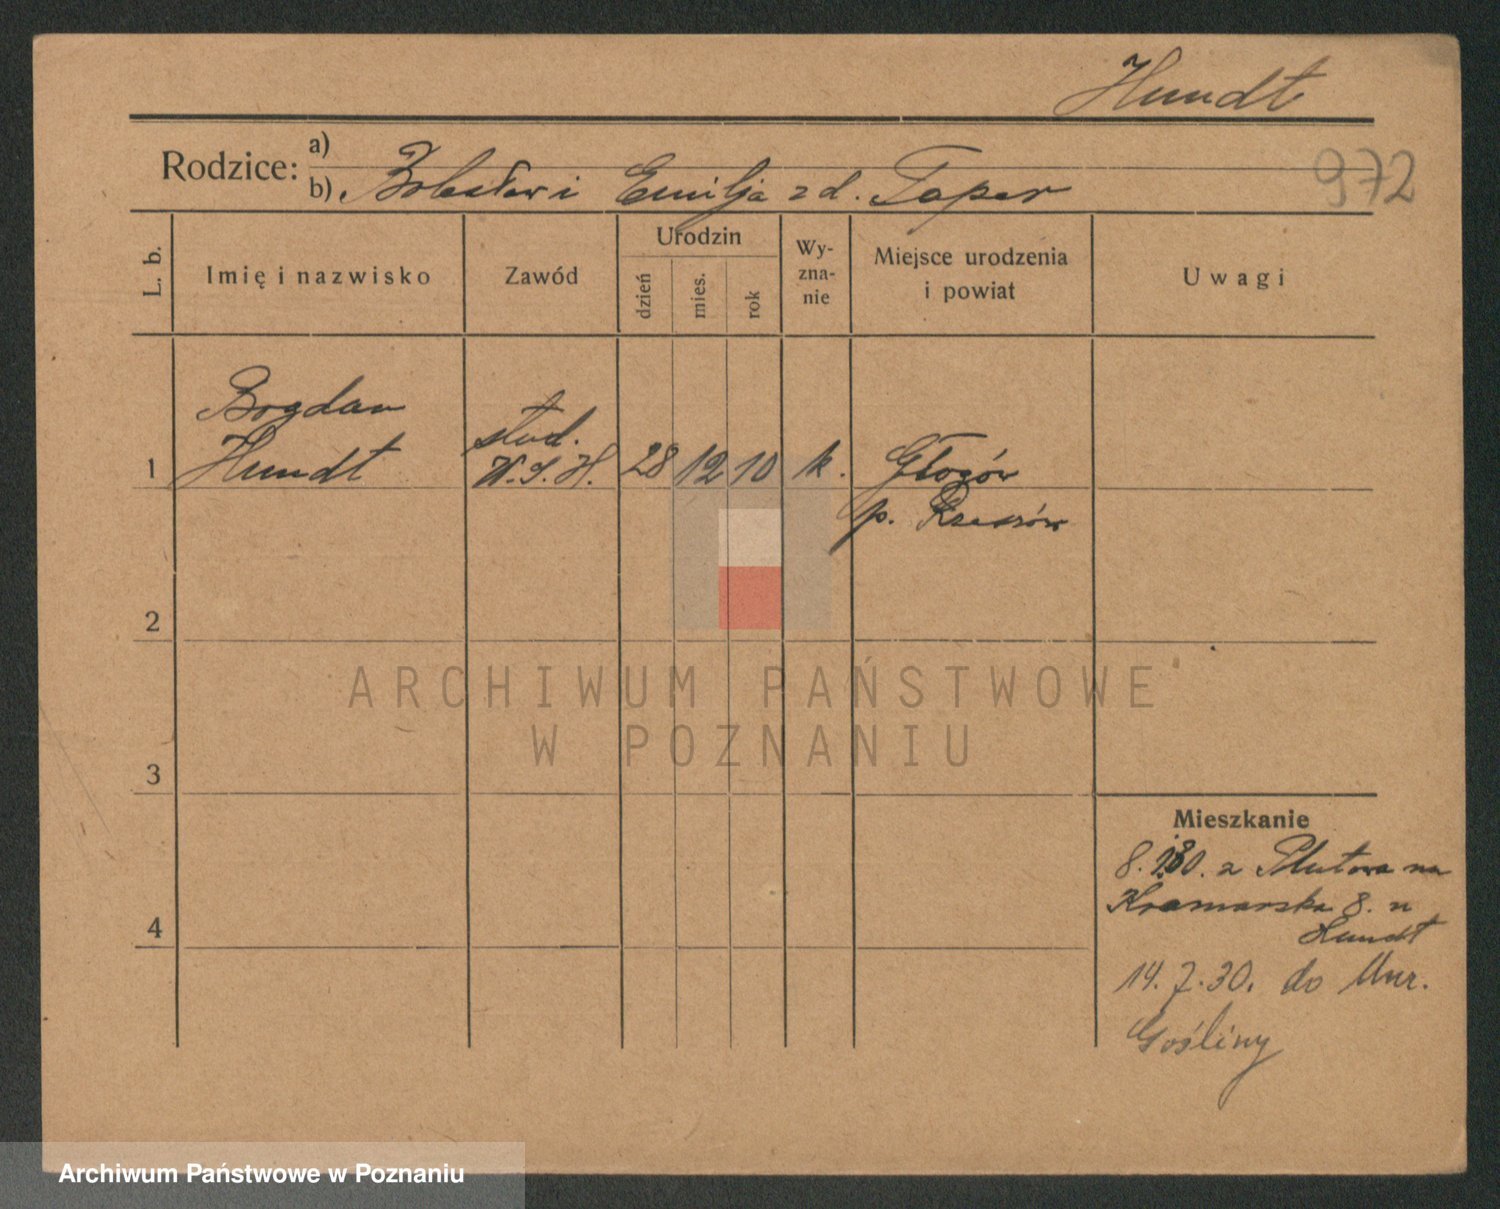 Hundt
972
Rodzice:
a)
b) Bolesław i Emilja z d. Taper
L. b.
Imię i nazwisko
Zawód
Urodzin
dzień
mies.
rok
Wy-
zna-
nie
Miejsce urodzenia
i powiat
Uwagi
Bogdan
1 Hundt
stud.
W.S.H.
28 12 10 k. Głogów
p. Rzeszów
2
3
4
Mieszkanie
z Plutowa na
Kramarska 8. u
Hundt
14. 7. 30. do Mur.
Gośliny
ARCHIWUM PAŃSTWOWE
W POZNANIU
Archiwum Państwowe w Poznaniu